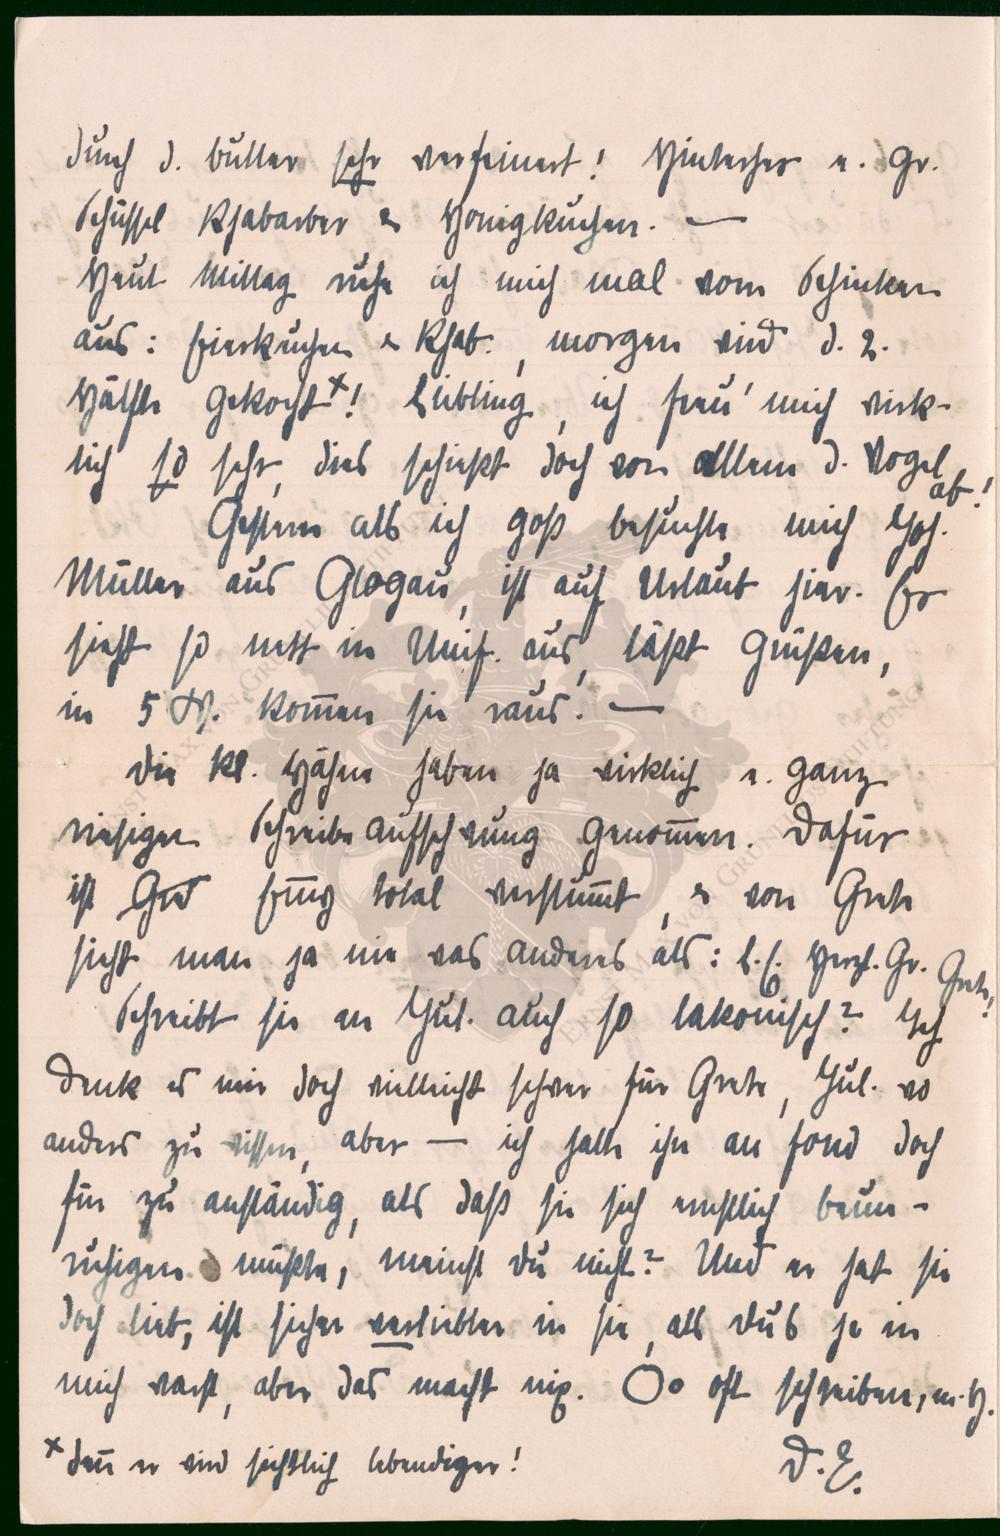 durch d. Butter sehr verfeinert! Hinterher e. Gr.
Schüssel Rhabarber & Honigkuchen. —
Heut Mittag ruhe ich mich mal vom Schinken
aus: Eierkuchen & Rhab., morgen wird d. 2.
Hälfte gekocht ×! Liebling, ich freu' mich wirk-
lich so sehr, dies schießt doch von allem d. Vogel
ab!
Gestern als ich goß besuchte mich Joh.
Müller aus Glogau, ist auf Urlaub hier. Er
sieht so nett in Unif. aus, läßt Grüßen,
in 5 W. kom̅en sie raus. —
Die kl. Hähne haben ja wirklich e. ganz
riesigen Schreibeaufschwung genom̅en. Dafür
ist total verstum̅t, & von Grete
sieht man ja nie was anderes als: Herzl. Gr. Grete!
Schreibt sie an Jul. auch so lakonisch? Ich
denk es mir doch vielleicht schwer für Grete, Jul. wo
anders zu wissen, aber — ich halte ihn au fond doch
für zu anständig, als daß sie sich ernstlich beun-
ruhigen müßte, meinst du nicht? Und er hat sie
doch lieb, ist sicher verliebter in sie, als du's je in
mich warst, aber das macht nix. Oo oft schreiben, m. H.
× den̅ er wird sichtlich lebendiger!
D. E.